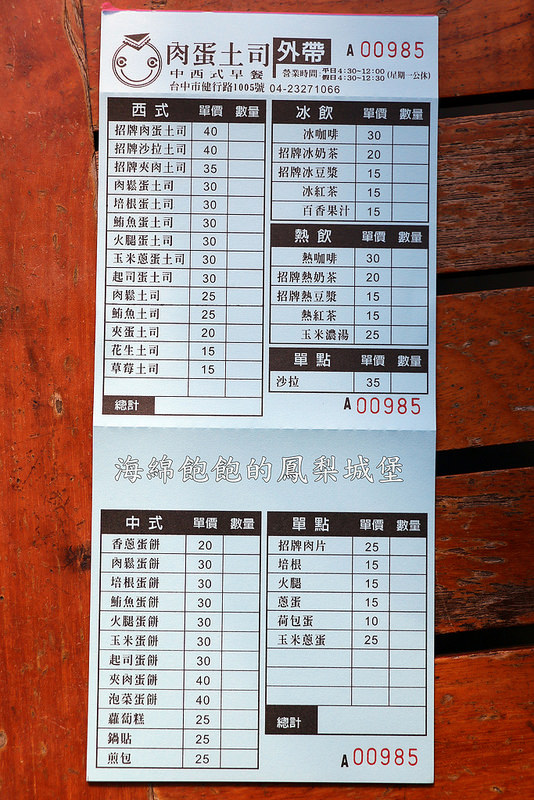 肉蛋土司 外帶 A 00985
中西式早餐 營業時間：平日4:30~12:00 假日4:30~12:30 (星期一公休)
台中市健行路1005號 04-23271066
西式 單價 數量
招牌肉蛋土司 40
招牌沙拉土司 40
招牌夾肉土司 35
肉鬆蛋土司 30
培根蛋土司 30
鮪魚蛋土司 30
火腿蛋土司 30
玉米蔥蛋土司 30
起司蛋土司 30
肉鬆土司 25
鮪魚土司 25
夾蛋土司 20
花生土司 15
草莓土司 15
總計
冰飲 單價 數量
冰咖啡 30
招牌冰奶茶 20
招牌冰豆漿 15
冰紅茶 15
百香果汁 15
熱飲 單價 數量
熱咖啡 30
招牌熱奶茶 20
招牌熱豆漿 15
熱紅茶 15
玉米濃湯 25
單點 單價 數量
沙拉 35
A 00985
海綿飽飽的鳳梨城堡
中式 單價 數量
香蔥蛋餅 20
肉鬆蛋餅 30
培根蛋餅 30
鮪魚蛋餅 30
火腿蛋餅 30
玉米蛋餅 30
起司蛋餅 30
夾肉蛋餅 40
泡菜蛋餅 40
蘿蔔糕 25
鍋貼 25
煎包 25
單點 單價 數量
招牌肉片 25
培根 15
火腿 15
蔥蛋 15
荷包蛋 10
玉米蔥蛋 25
總計
A 00985